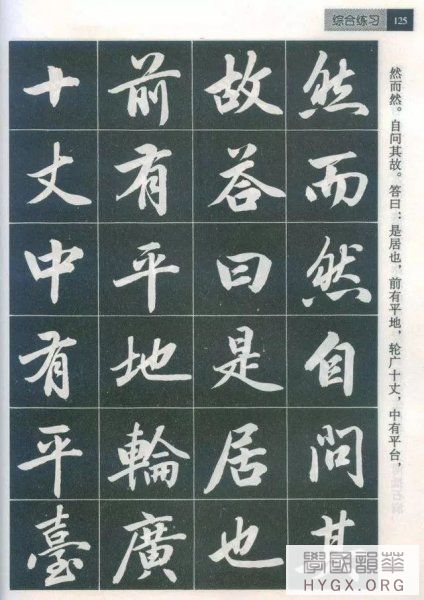 综合练习 125
然而然自問其
故荅曰是居也
前有平地輪廣
十丈中有平臺
然而然。自问其故。答曰：是居也，前有平地，轮广十丈，中有平台，
學國韻華
HYGX.ORG